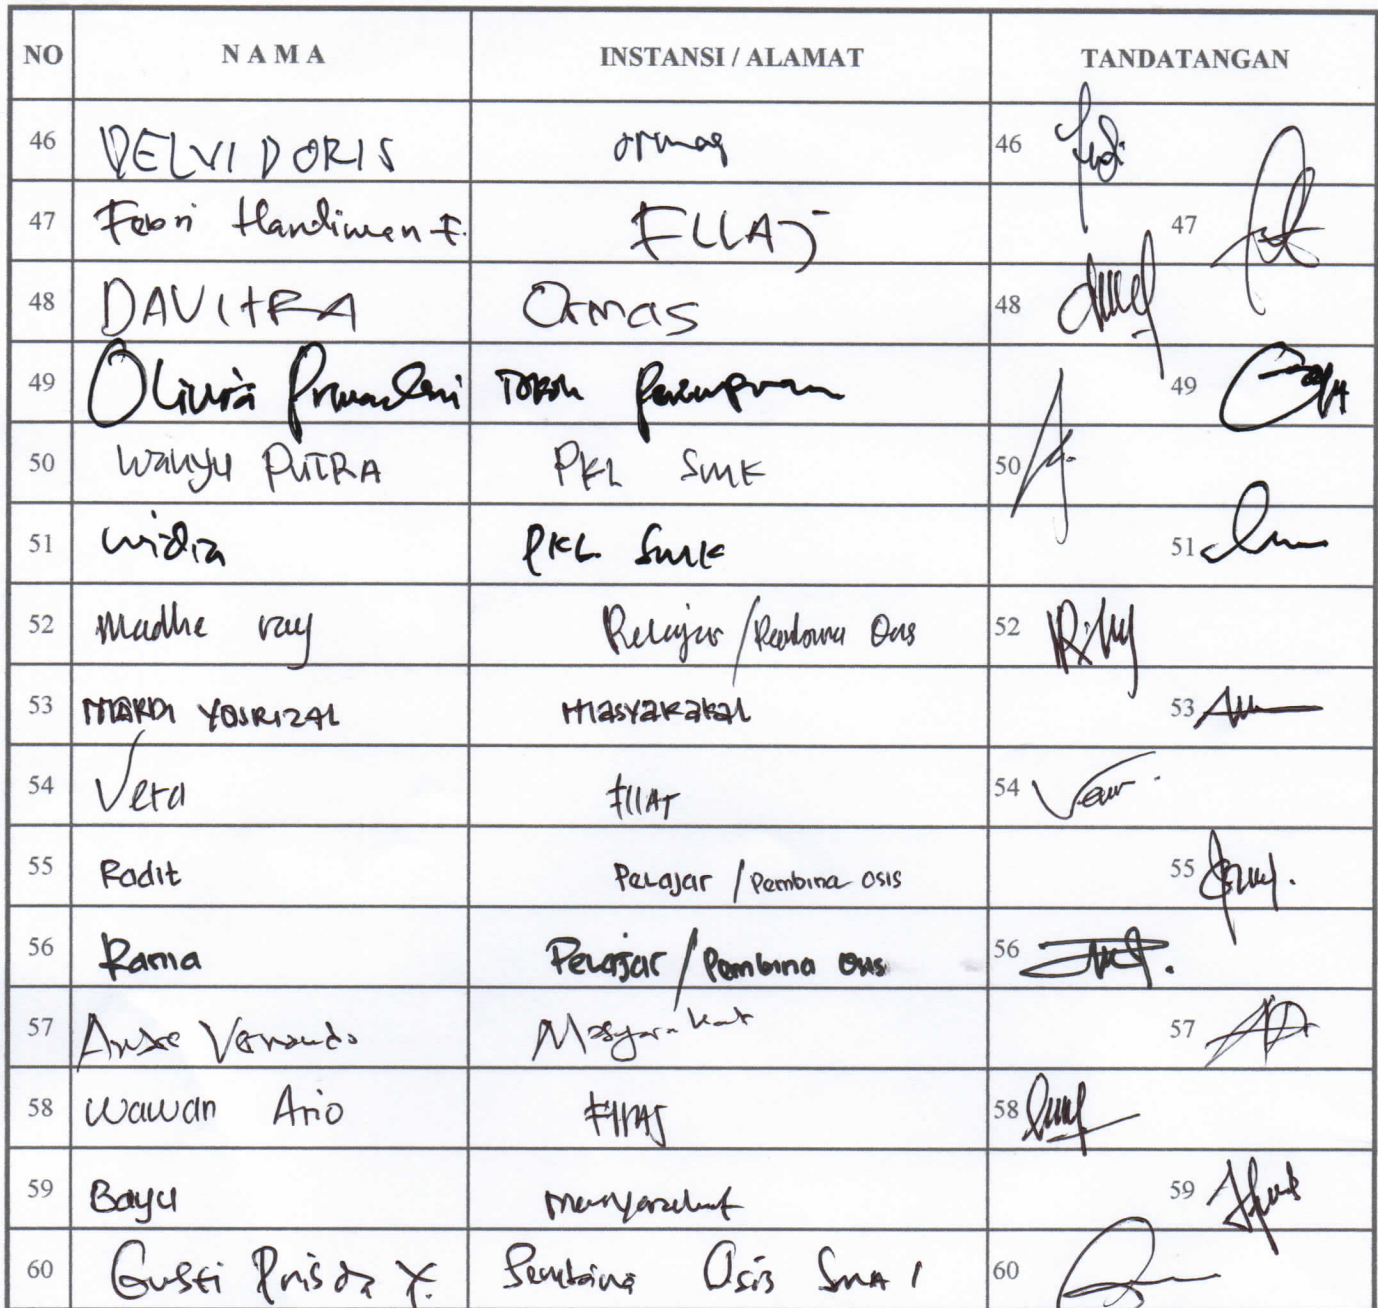 NO NAMA INSTANSI / ALAMAT TANDATANGAN
46 DELVI DORIS ormas 46
47 Febri Handiman F. FLLAJ 47
48 DAVITRA Ormas 48
49 Olivia Tokoh Perempuan 49
50 Wahyu PUTRA PKL SMK 50
51 widia PKL SMK 51
52 Madhe ray Pelajar / Pembina Osis 52
53 MARDI YOSRIZAL Masyarakat 53
54 Vera FllAJ 54
55 Radit Pelajar / Pembina osis 55
56 Rama Pelajar / Pembina Osis 56
57 Andre Vernando Masyarakat 57
58 Wawan Ario FllAJ 58
59 Bayu masyarakat 59
60 Gusti Prisda Y. Pembina Osis SMA 1 60